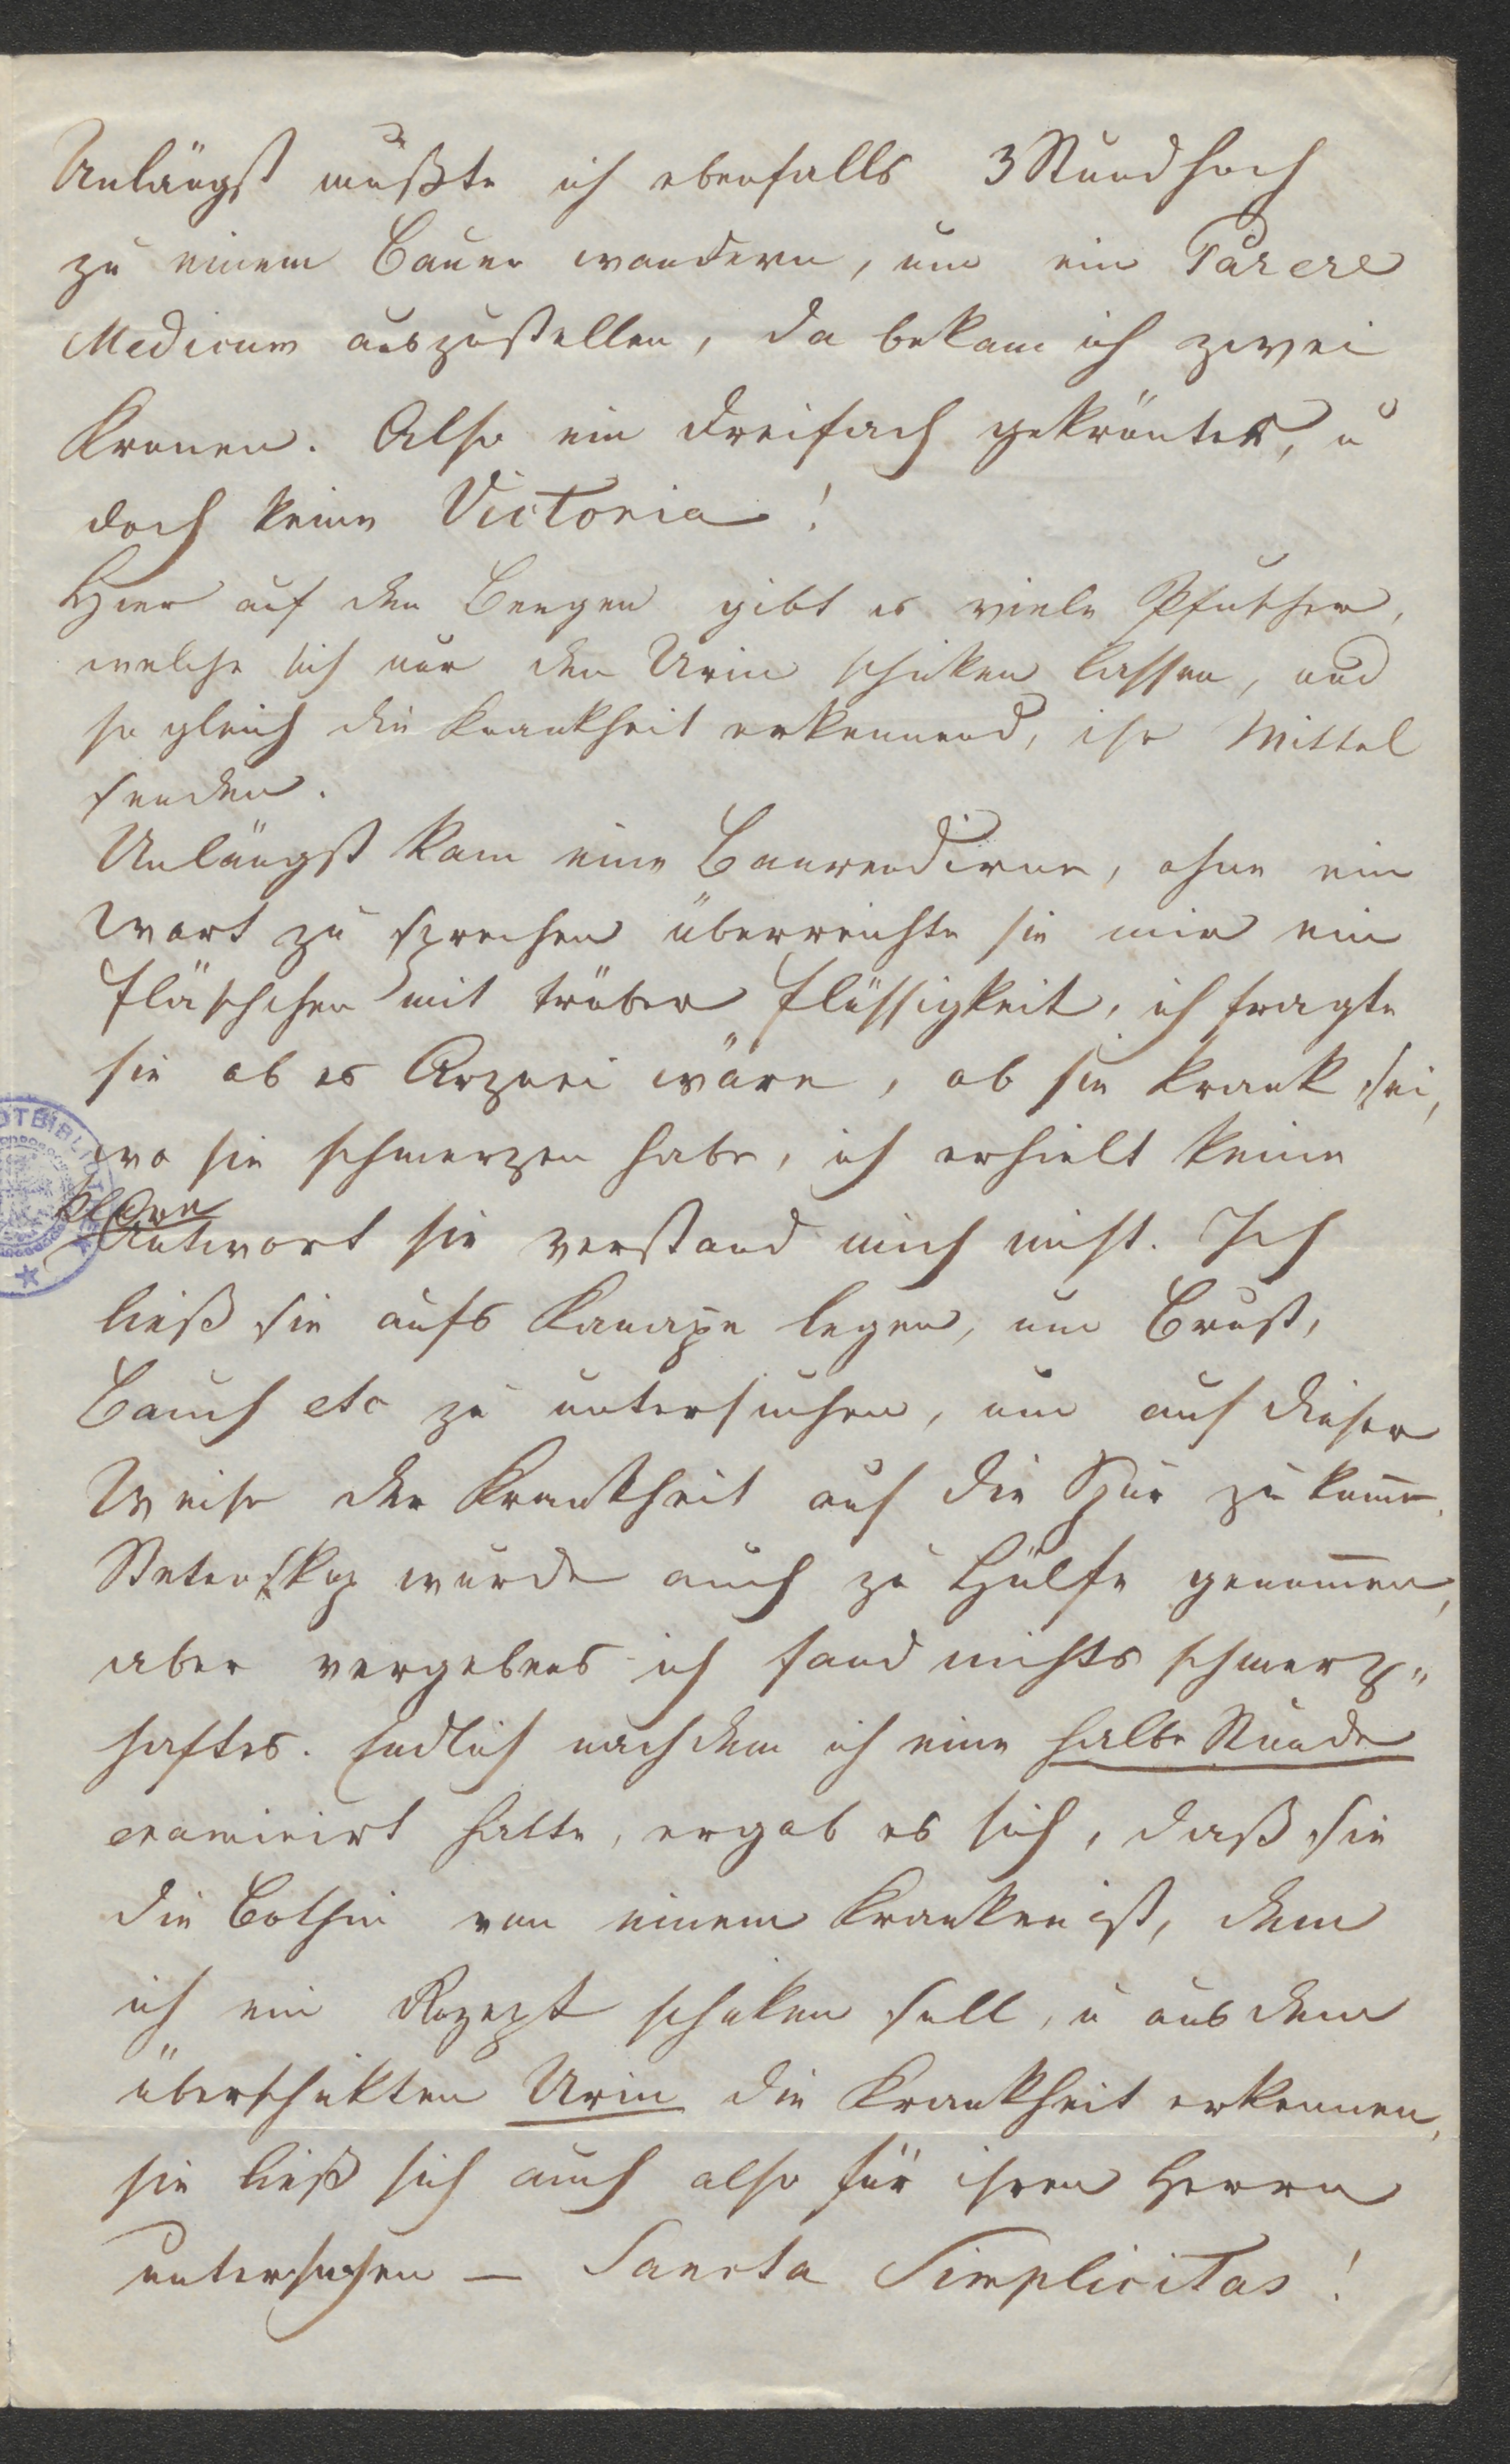 Unlängst mußte ich ebenfalls 3 Stund hoch
zu einem Bauer wandern, um ein Parere
Medicum auszustellen, da bekam ich zwei
Kronen. Also ein dreifach gekrönter, u
doch keine Victoria!
Hier auf den Bergen gibt es viele Pfuscher,
welche sich nur den Urin schiken lassen, und
so gleich die Krankheit erkennend, ihr Mittel
senden.
Unlängst kam eine Baurendirne, ohne ein
Wort zu sprechen überreichte sie mir ein
Fläschchen mit trüber Flüssigkeit, ich fragte
sie ob es Arznei wäre, ob sie krank sei,
wo sie schmerzen habe, ich erhielt keine
klare
Antwort sie verstand mich nicht. Ich
ließ sie aufs Kanape legen, um Brust,
Bauch etc zu untersuchen, um auf dieser
Weise der Krankheit auf die Spur zu kom̄en.
Stetoskop wurde auch zu Hülfe genom̄en,
aber vergebens - ich fand nichts schmerz„
haftes. Endlich nachdem ich eine halbe Stunde
examinirt hatte, ergab es sich, daß sie
die Bothin von einem Kranken ist, dem
ich ein Rezept schiken soll, u aus dem
überschikten Urin die Krankheit erkennen,
sie ließ sich auch also für ihren Herrn
untersuchen — Sancta Simplicitas!